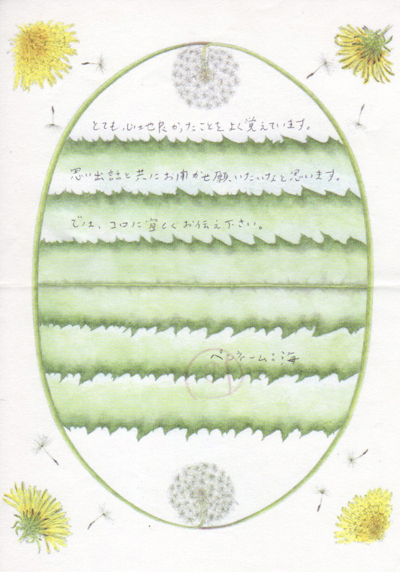 とても、心地良かったことをよく覚えています。
思い出話と共にお聞かせ願いたいなと思います。
では、コロに宜しくお伝え下さい。
ペンネーム:海